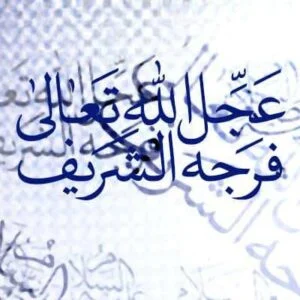 عَجَّلَ اللهُ تَعَالىٰ
فَرَجَهُ الشَّرَيفْ